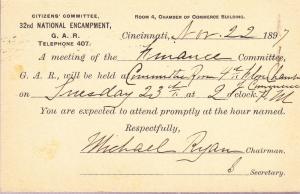 CITIZENS' COMMITTEE,
32nd NATIONAL ENCAMPMENT,
G. A. R.
TELEPHONE 407.
ROOM 4, CHAMBER OF COMMERCE BUILDING.
Cincinnati, Nov. 22 1897
A meeting of the Finance Committee,
G. A. R., will be held Committee Room Chamber
of Commerce
on Tuesday 23rd at 2 o'clock, P.M.
You are expected to attend promptly at the hour named.
Respectfully,
Michael Ryan Chairman.
Secretary.